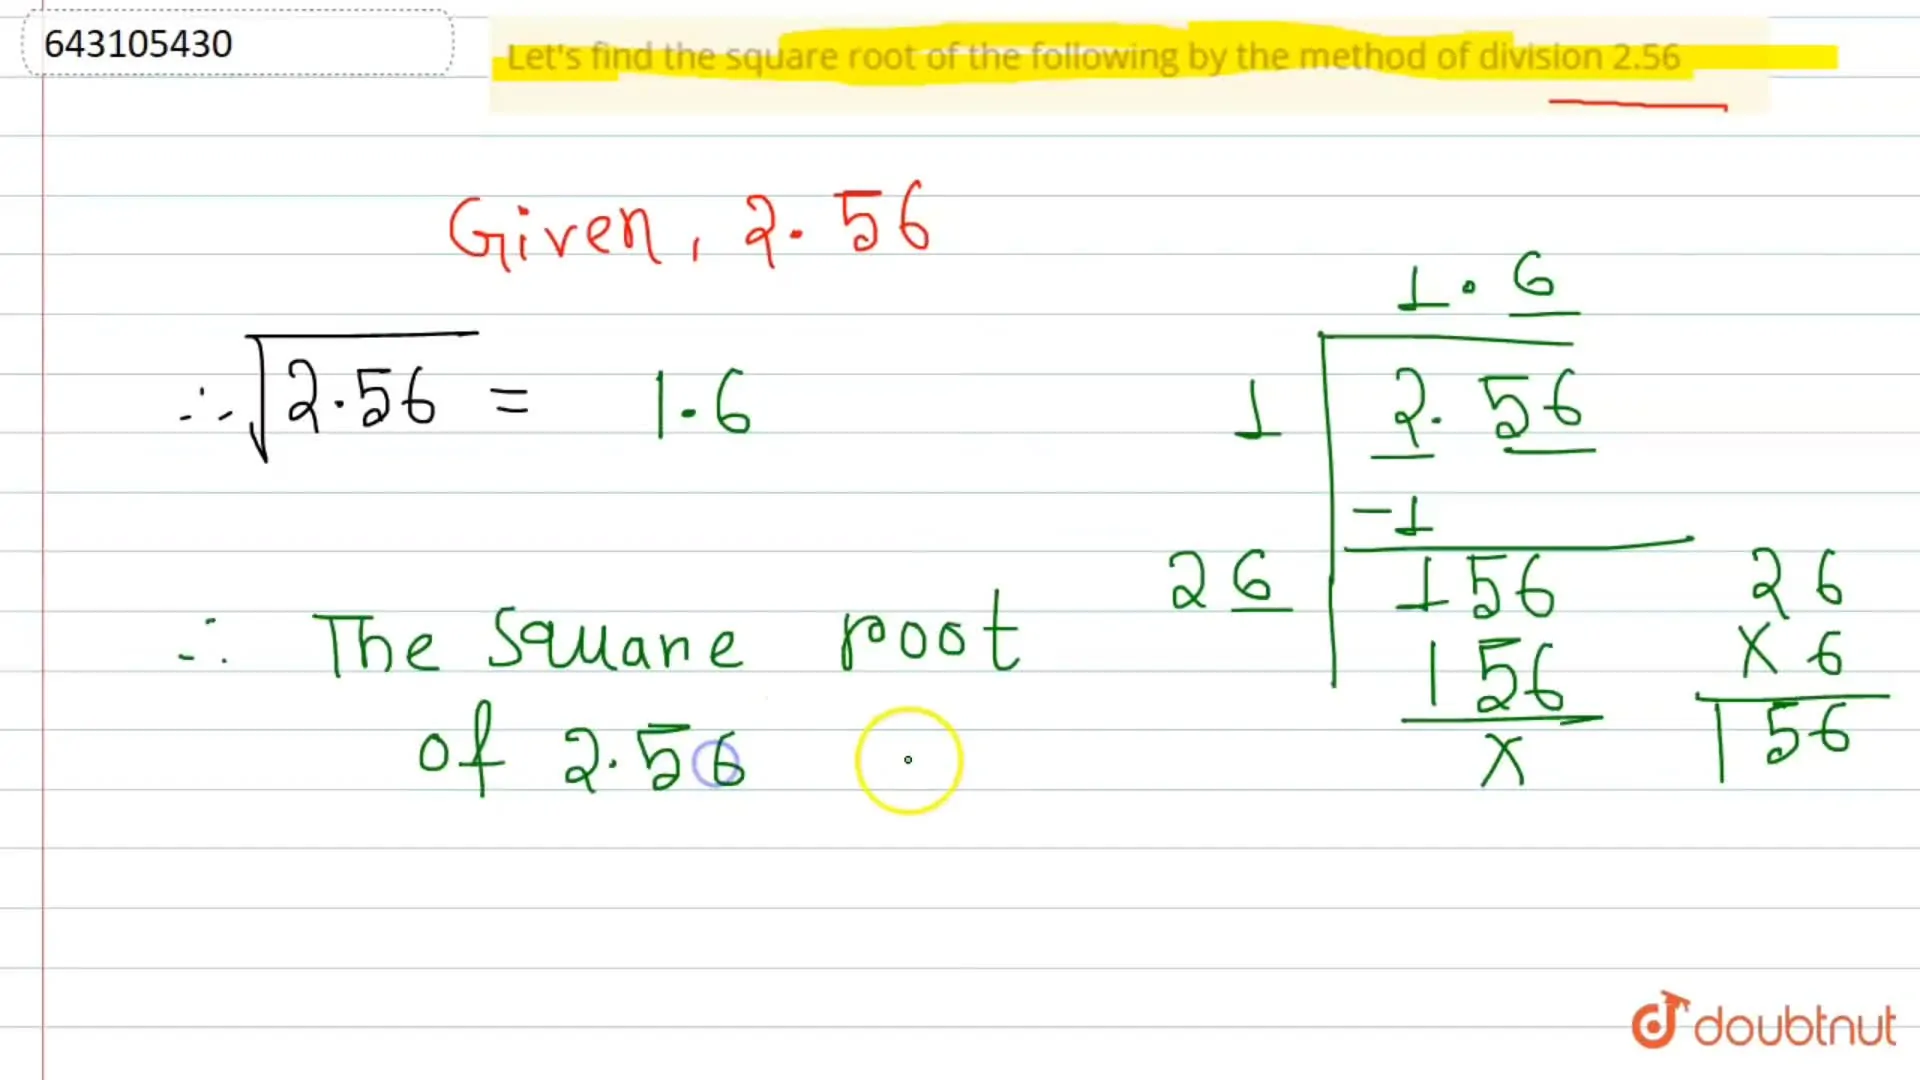 643105430
Let's find the square root of the following by the method of division 2.56
Given, 2.56
∴ √2.56 = 1.6
∴ The square root
of 2.56
1.6
1 2.56
-1
26 156
156
x
26
x 6
156
doubtnut